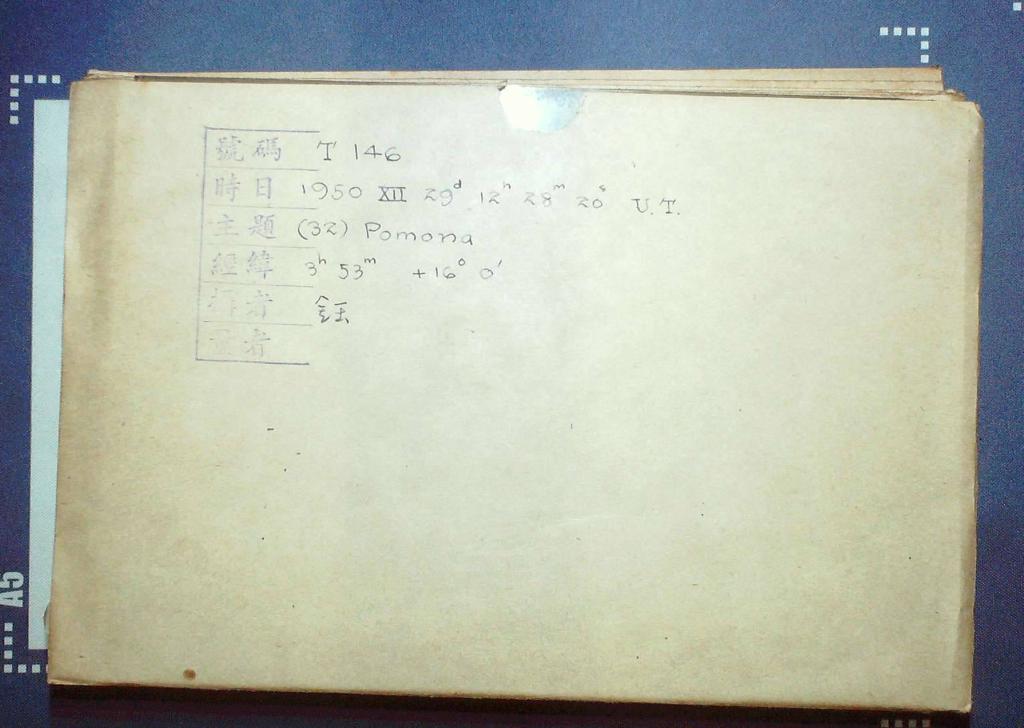 號碼 T 146
時日 1950 XII 29d 12h 28m 20s U.T.
主題 (32) Pomona
經緯 3h 53m +16° 0'
者 鈺
者
A5